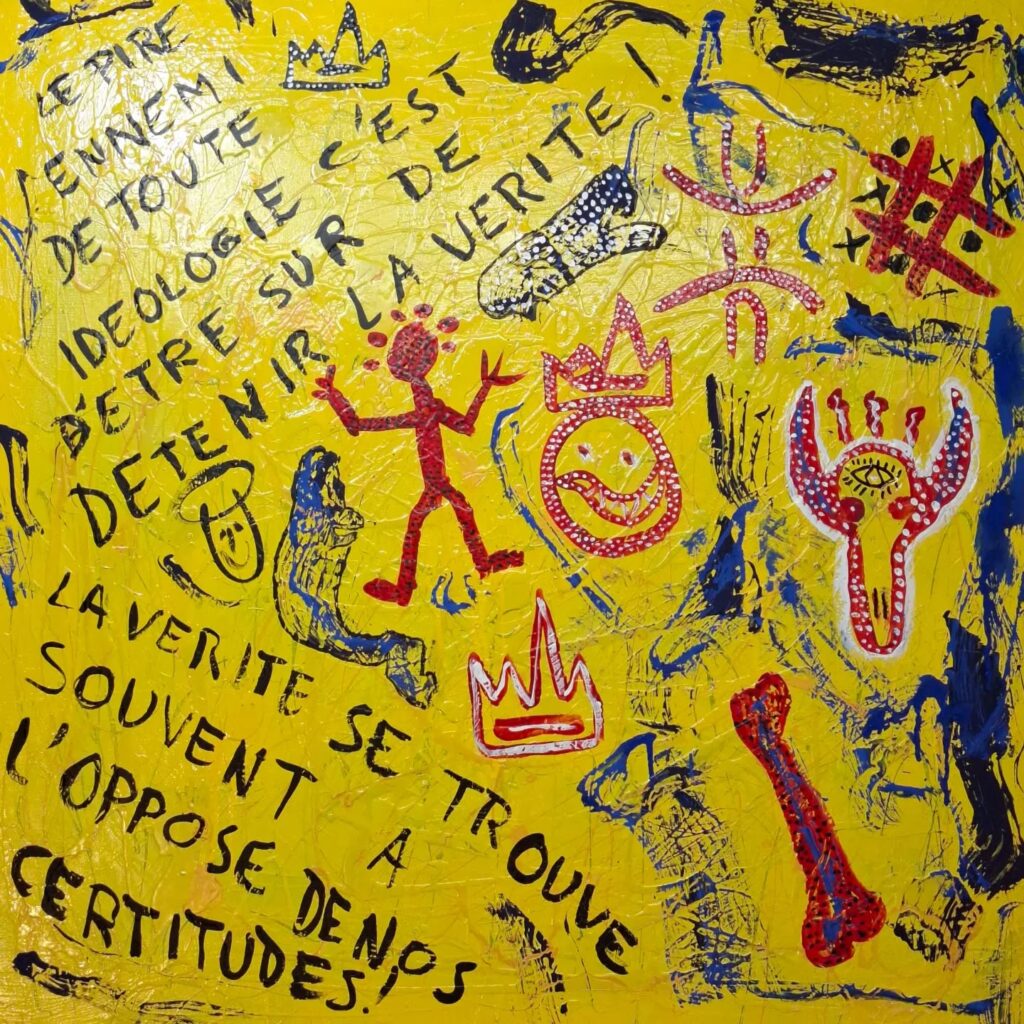 LE PIRE
ENNEMI
DE TOUTE
IDEOLOGIE C'EST
D'ETRE SUR DE
DETENIR LA VERITE !
LA VERITE SE TROUVE
SOUVENT A
L'OPPOSE DE NOS
CERTITUDES!